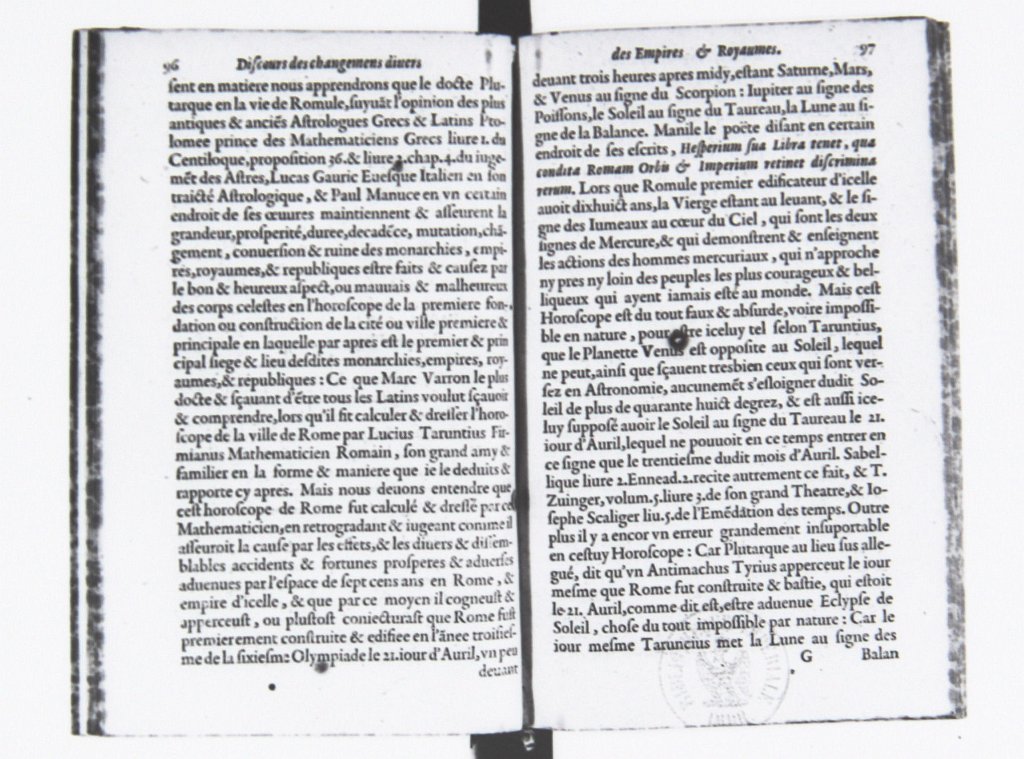 96 Diſcours des changemens diuers
ſent en matiere nous apprendrons que le docte Plu-
tarque en la vie de Romule,ſuyuãt l'opinion des plus
antiques & anciẽs Aſtrologues Grecs & Latins Pto-
lomee prince des Mathematiciens Grecs liure 1. du
Centiloque,propoſition 36.& liure 2.chap.4.du iuge-
mẽt des Aſtres,Lucas Gauric Eueſque Italien en ſon
traicté Aſtrologique, & Paul Manuce en vn certain
endroit de ſes œuures maintiennent & aſſeurent la
grandeur,proſperité,duree,decadẽce, mutation,chã-
gement , conuerſion & ruine des monarchies, empi-
res,royaumes,& republiques eſtre faits & cauſez par
le bon & heureux aſpect,ou mauuais & malheureux
des corps celeſtes en l'horoſcope de la premiere fon-
dation ou conſtruction de la cité ou ville premiere &
principale en laquelle par apres eſt le premier & prin
cipal ſiege & lieu deſdites monarchies,empires, roy-
aumes,& republiques : Ce que Marc Varron le plus
docte & ſçauant d'étre tous les Latins voulut ſçauoir
& comprendre,lors qu'il fit calculer & dreſſer l'horo-
ſcope de la ville de Rome par Lucius Taruntius Fir-
mianus Mathematicien Romain , ſon grand amy &
familier en la forme & maniere que ie le deduits &
rapporte cy apres. Mais nous deuons entendre que
ceſt horoſcope de Rome fut calculé & dreſſé par ced
Mathematicien,en retrogradant & iugeant comme il
aſſeuroit la cauſe par les effets,& les diuers & diſſem-
blables accidents & fortunes proſperes & aduerſes
aduenues par l'eſpace de ſept cens ans en Rome , &
empire d'icelle , & que par ce moyen il cogneuſt &
apperceuſt , ou pluſtoſt coniecturaſt que Rome fuſt
premierement conſtruite & edifiee en l'ãnee troiſieſ-
me de la ſixieſme Olympiade le 21.iour d'Auril,vn peu
deuant
des Empires & Royaumes. 97
deuant trois heures apres midy,eſtant Saturne,Mars,
& Venus au ſigne du Scorpion : Iupiter au ſigne des
Poiſſons,le Soleil au ſigne du Taureau,la Lune au ſi-
gne de la Balance. Manile le poëte diſant en certain
endroit de ſes eſcrits , Heſperium ſua Libra tenet, qua
condita Romam Orbis & Imperium retinet diſcrimina
rerum. Lors que Romule premier edificateur d'icelle
auoit dixhuict ans,la Vierge eſtant au leuant, & le ſi-
gne des Iumeaux au cœur du Ciel , qui ſont les deux
ſignes de Mercure,& qui demonſtrent & enſeignent
les actions des hommes mercuriaux , qui n'approche
ny pres ny loin des peuples les plus courageux & bel-
liqueux qui ayent iamais eſté au monde. Mais ceſt
Horoſcope eſt du tout faux & abſurde,voire impoſſi-
ble en nature , pour eſtre iceluy tel ſelon Taruntius,
que le Planette Venus eſt oppoſite au Soleil , lequel
ne peut,ainſi que ſçauent tresbien ceux qui ſont ver-
ſez en Aſtronomie, aucunemẽt s'eſloigner dudit So-
leil de plus de quarante huict degrez, & eſt auſſi ice-
luy ſuppoſé auoir le Soleil au ſigne du Taureau le 21.
iour d'Auril,lequel ne pouuoit en ce temps entrer en
ce ſigne que le trentieſme dudit mois d'Auril. Sabel-
lique liure 2.Ennead.2.recite autrement ce fait, & T.
Zuinger,volum.5.liure 3.de ſon grand Theatre,& Io-
ſephe Scaliger liu.5.de l'Emẽdãtion des temps. Outre
plus il y a encor vn erreur grandement inſuportable
en ceſtuy Horoſcope : Car Plutarque au lieu ſus alle-
gué, dit qu'vn Antimachus Tyrius apperceut le iour
meſme que Rome fut conſtruite & baſtie, qui eſtoit
le 21. Auril,comme dit eſt,eſtre aduenue Eclypſe de
Soleil , choſe du tout impoſſible par nature : Car le
iour meſme Taruncius met la Lune au ſigne des
G Balan